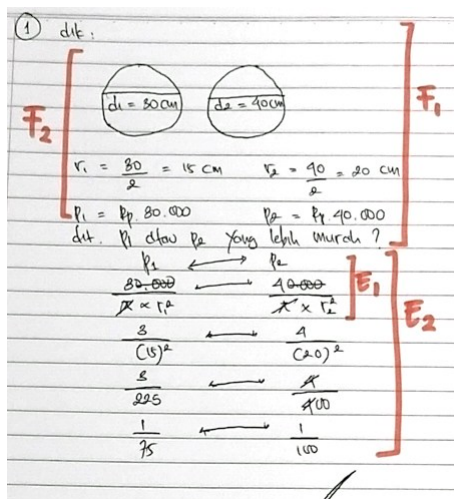 ① dik:
F₂
F₁
d₁ = 30 cm
d₂ = 40 cm
r₁ = 30/2 = 15 cm r₂ = 40/2 = 20 cm
P₁ = Rp. 30.000 P₂ = Rp. 40.000
dit. P₁ atau P₂ yang lebih murah ?
P₁ ⟷ P₂
30.000/π × r₁² ⟷ 40.000/π × r₂²
E₁
E₂
3/(15)² ⟷ 4/(20)²
3/225 ⟷ 4/400
1/75 ⟷ 1/100